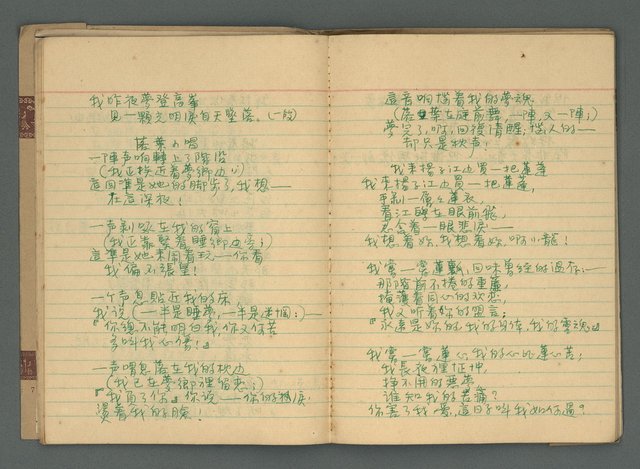 我昨夜夢登高峯
見一顆光明淚自天墜落。(一段)
落葉小唱
一陣声响轉上了階沿
(我正挨近着夢鄉边;)
這回準是她的脚步了,我想——
在這深夜!
一声剝啄在我的窗上
(我正靠緊着睡鄉旁;)
這準是她來閙着玩——你看
我偏不張皇!
一个声息貼近我的床,
我說(一半是睡夢,一半是迷惘:)——
『你總不能明白我,你又何苦
多叫我心傷!』
一声喟息落在我的枕边
(我已在夢鄉裡留恋;)
『我負了你』你說——你的熱淚
燙着我的臉!
這音响惱着我的夢魂
(落葉在庭前舞,一陣,又一陣;)
夢完了,呵,回復清醒;惱人的——
却只是秋声!
我來揚子江边買一把蓮蓬
我來揚子江边買一把蓮蓬,
手剝一層々蓮衣,
看江鷗在眼前飛,
忍含着一眼悲淚——
我想着妳,我想着妳,啊小龍!
我嘗一嘗蓮瓤,回味曾經的溫存:——
那階前不捲的重簾,
掩護着同心的欢恋,
我又听着你的盟言:
『永遠是妳的,我的身体,我的靈魂。』
我嘗一嘗蓮心,我的心比蓮心苦;
我長夜裡怔忡,
掙不開的惡夢,
誰知我的苦痛?
你害了我,愛,這日子叫我如何過?